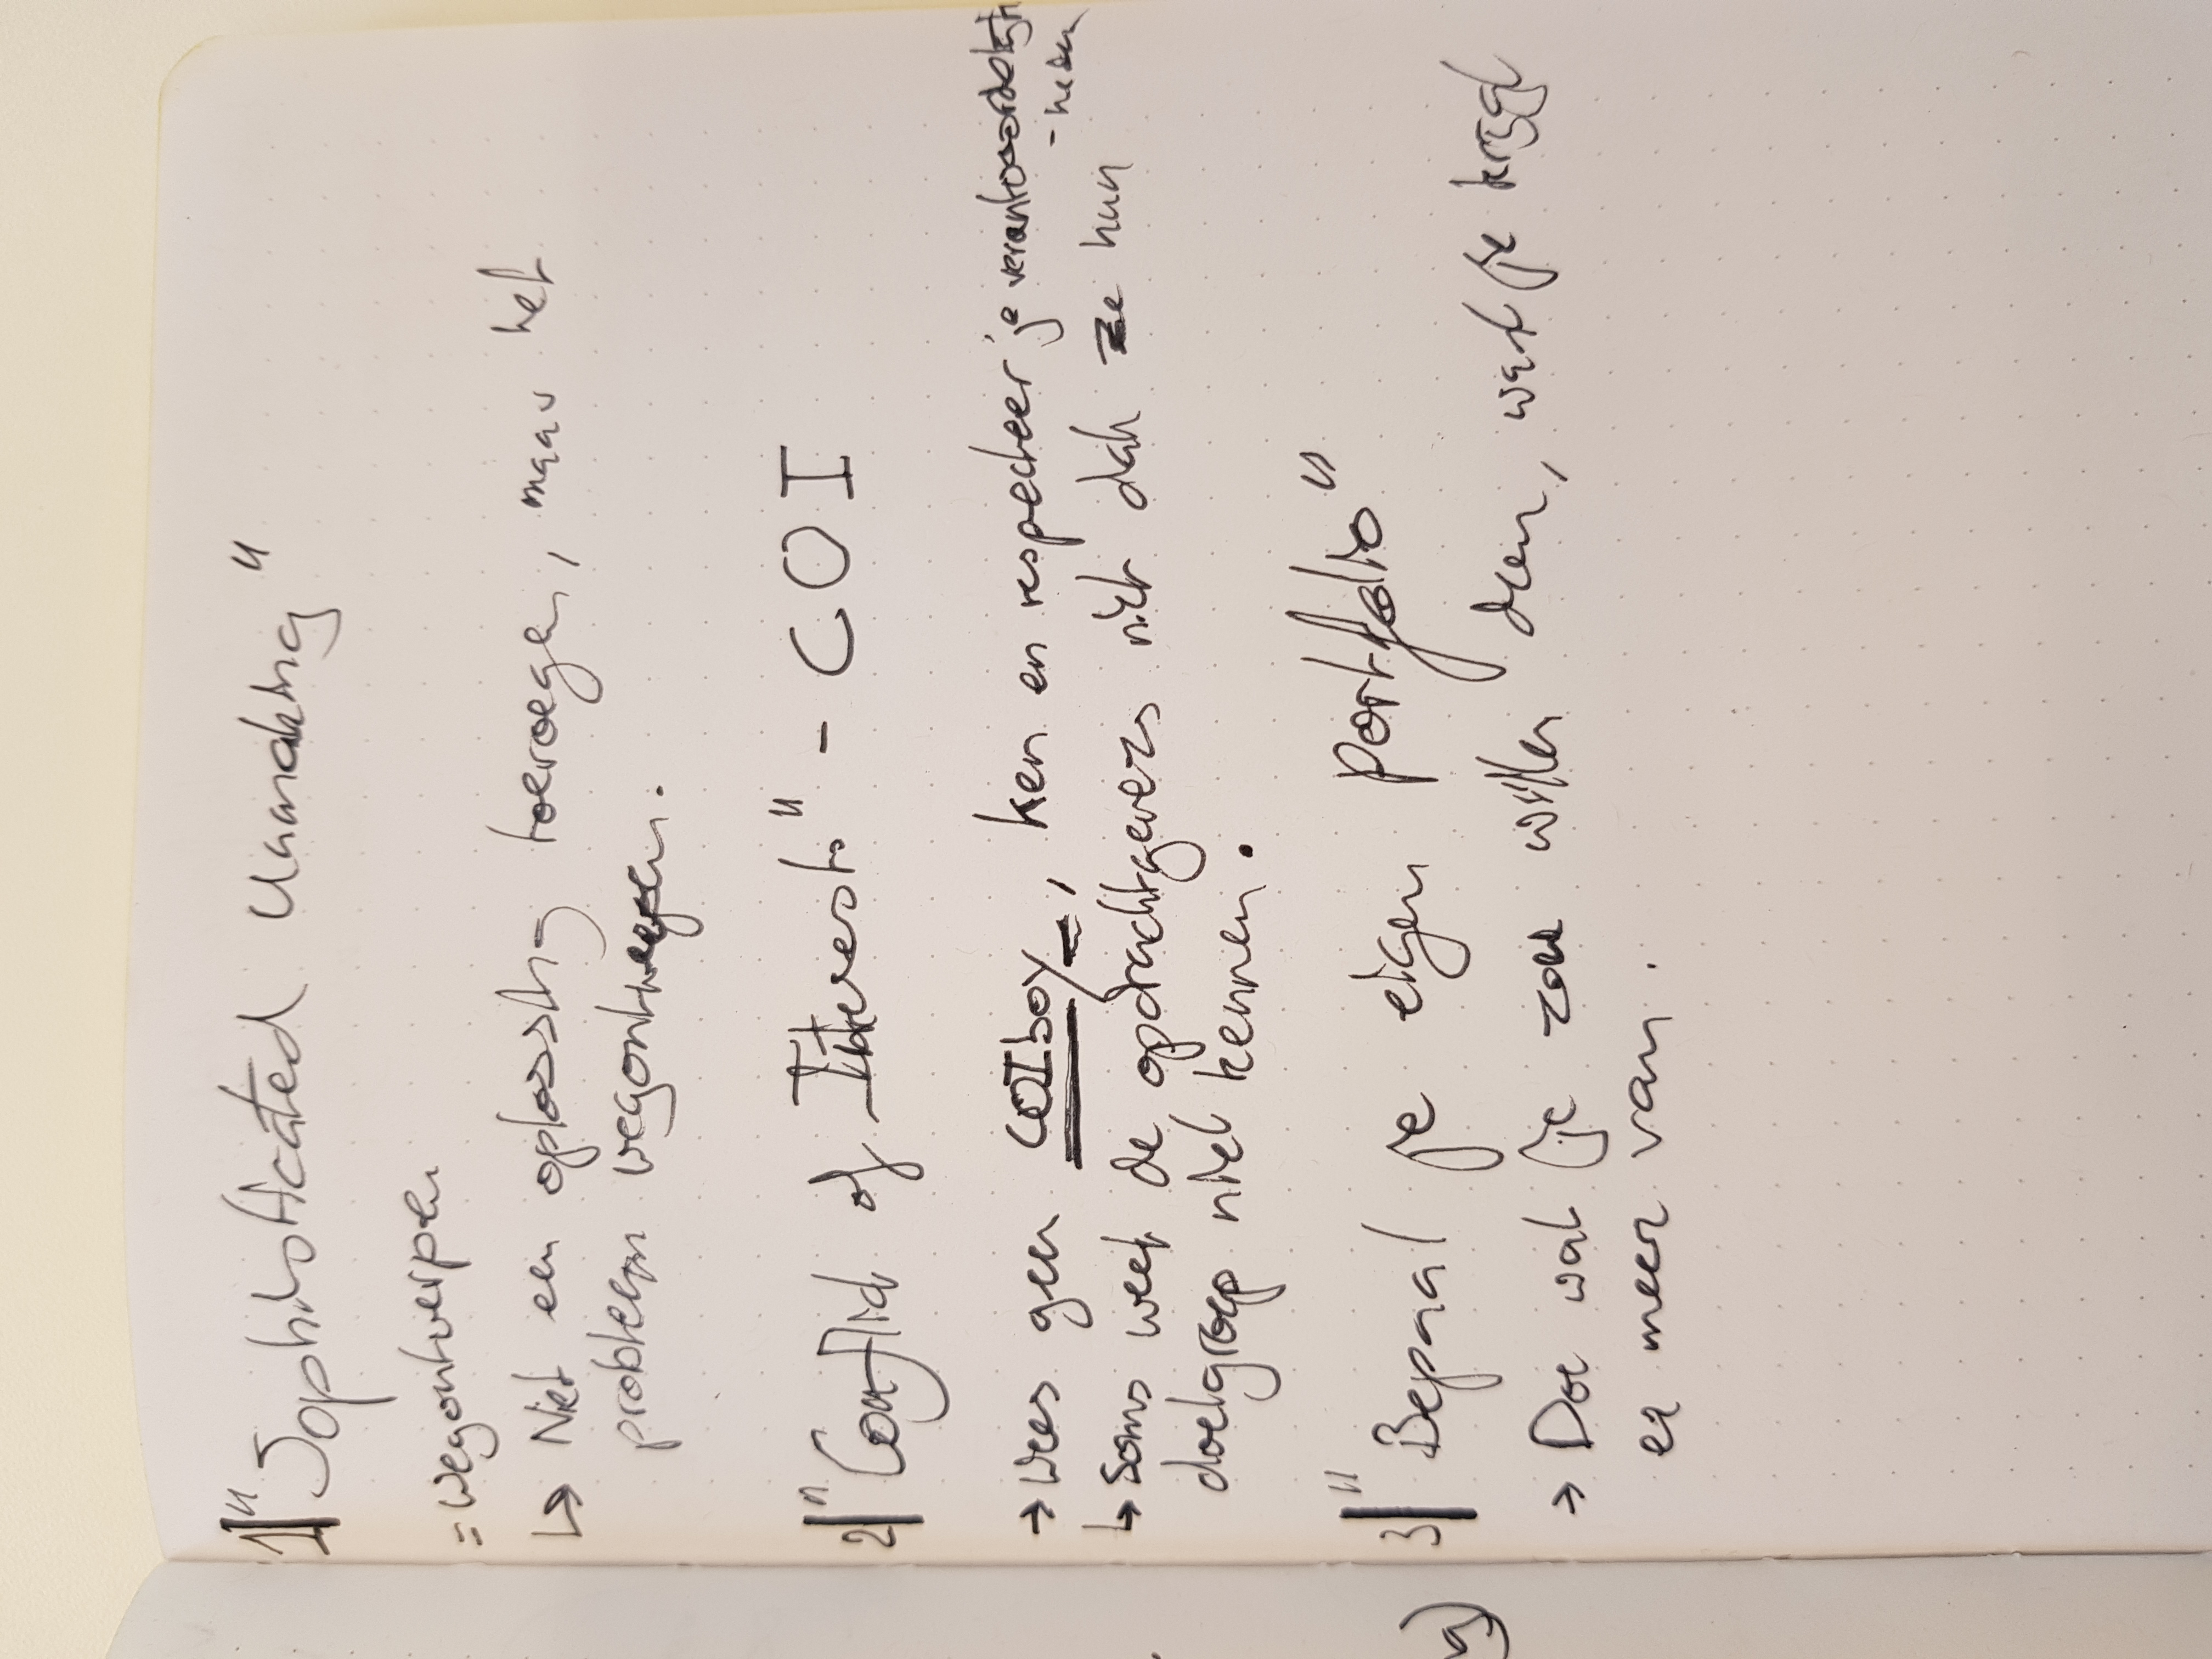 1 "Sophisticated Unmaking"
= wegontwerpen
↳ Niet een oplossing toevoegen, maar het
probleem wegontwerpen.
2 "Conflict of Interests" - COI
→ Wees geen COIboy, ken en respecteer je verantwoordelijk
-heden
↳ Soms weet de opdrachtgevers niet dat ze hun
doelgroep niet kennen.
3 "Bepaal je eigen portfolio"
→ Doe wat je zou willen doen, want je krijgt
er meer van.